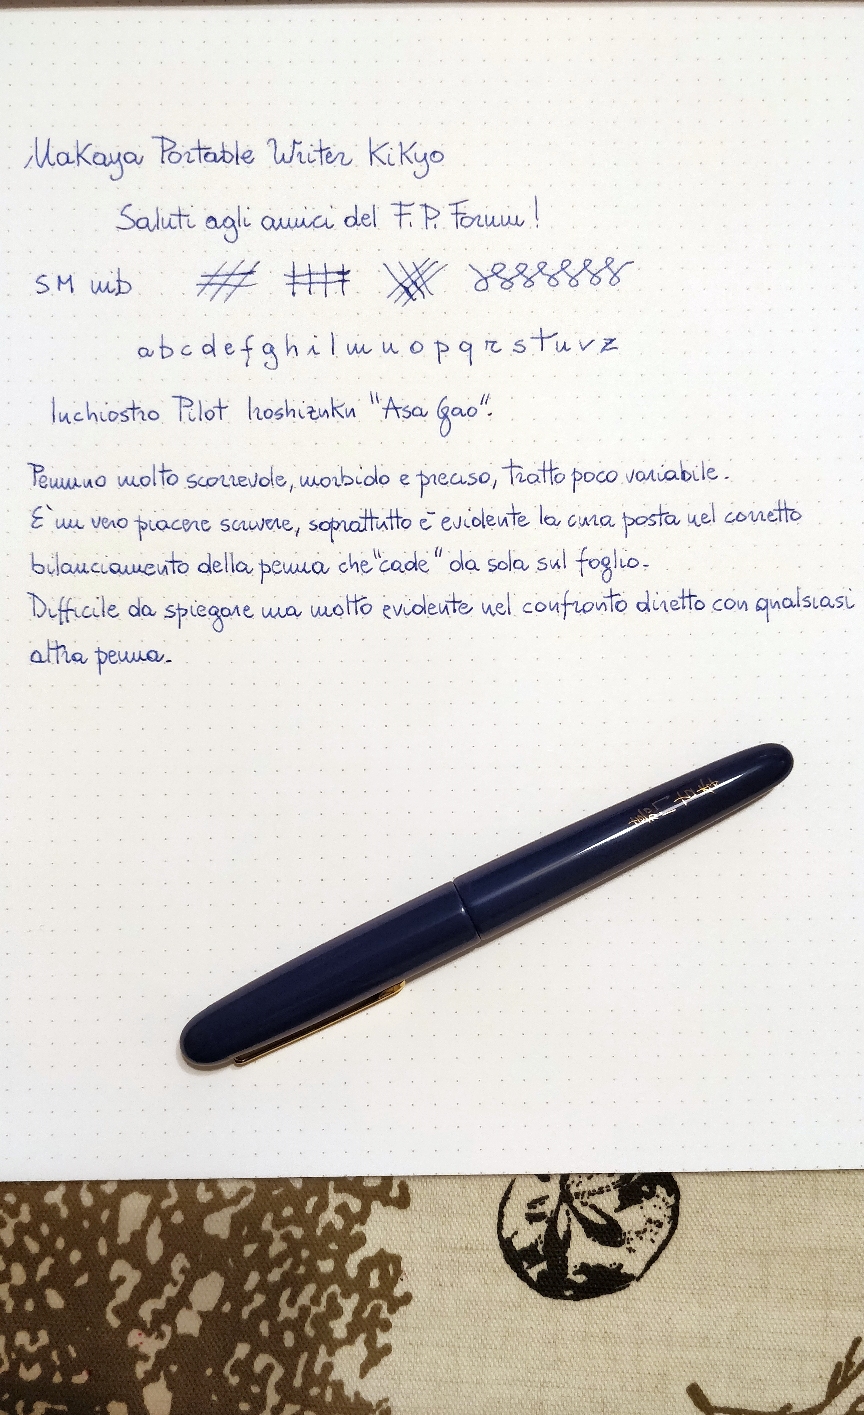 Nakaya Portable Writer Kikyo
Saluti agli amici del F.P. Forum!
SM nib
a b c d e f g h i l m n o p q r s t u v z
Inchiostro Pilot Iroshizuku "Asa Gao".
Pennino molto scorrevole, morbido e preciso, tratto poco variabile.
E' un vero piacere scrivere, soprattutto è evidente la cura posta nel corretto
bilanciamento della penna che "cade" da sola sul foglio.
Difficile da spiegare ma molto evidente nel confronto diretto con qualsiasi
altra penna.